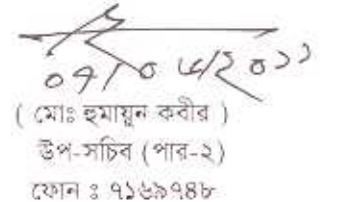 ০৭/০৬/২০১১
( মোঃ হুমায়ুন কবীর )
উপ-সচিব (পার-২)
ফোন ঃ ৭১৬৯৭৪৮